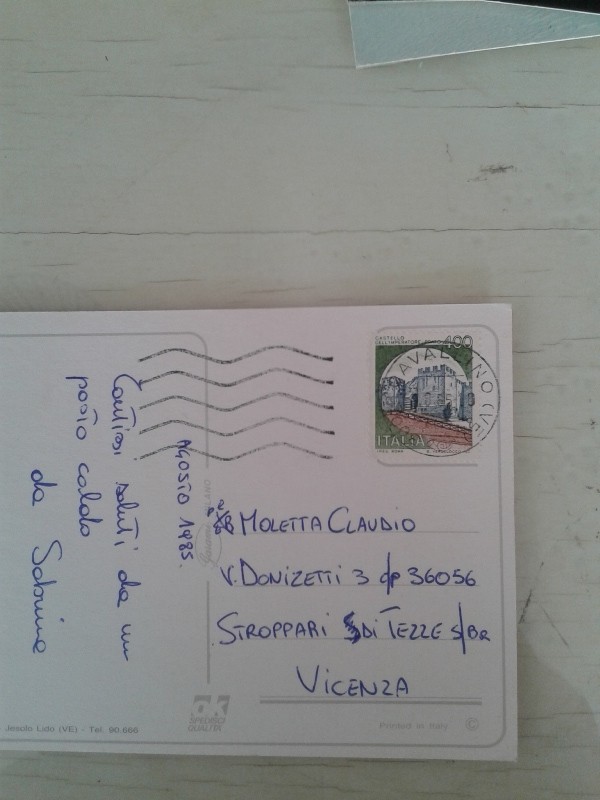 CASTELLO
DELL'IMPERATORE
400
CAVALLINO (VE)
ITALIA
AGOSTO 1985.
saluti da un
posto caldo
da Sabrina
MOLETTA CLAUDIO
V. DONIZETTI 3 cp 36056
STROPPARI DI TEZZE S/BR
VICENZA
OK
SPEDISCI
QUALITÀ
Jesolo Lido (VE) - Tel. 90.666
Printed in Italy ©